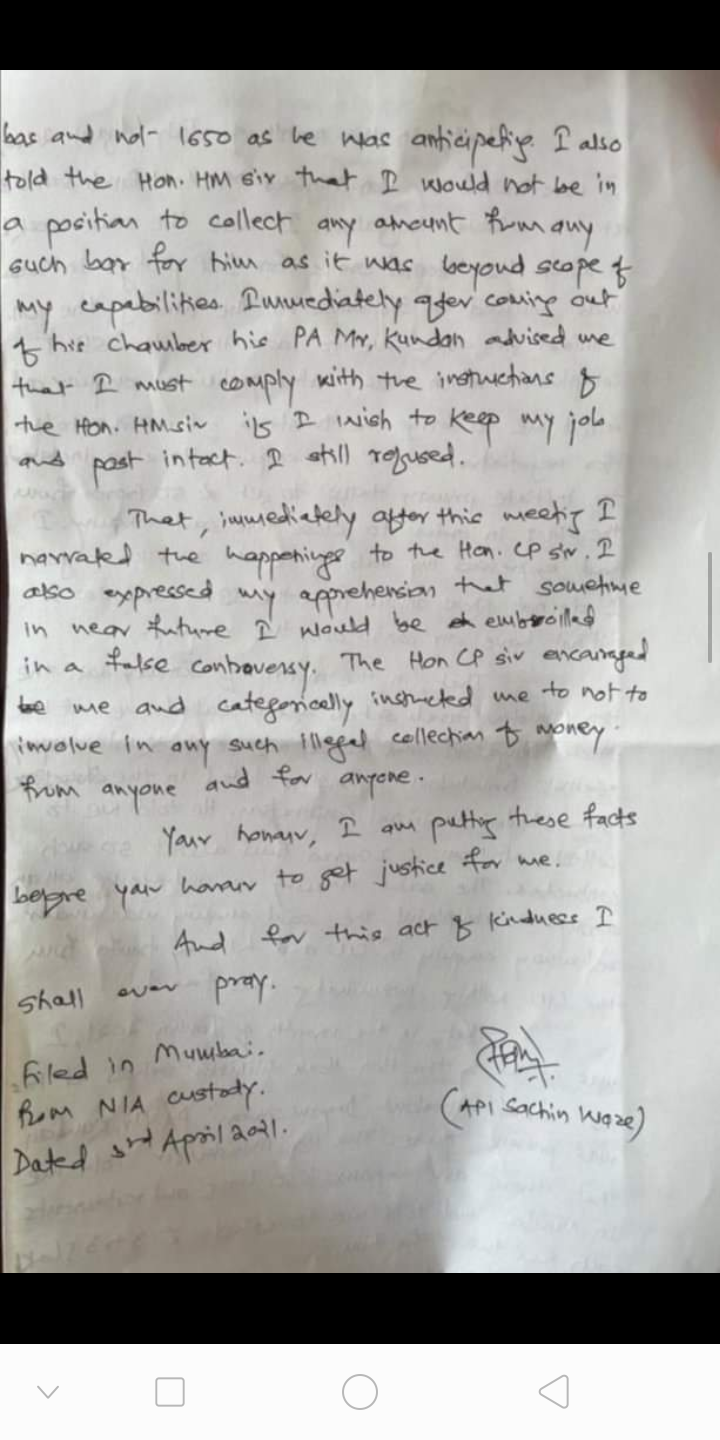 bas and not 1650 as he was anticipating. I also
told the Hon. HM sir that I would not be in
a position to collect any amount from any
such bar for him as it was beyond scope of
my capabilities. Immediately after coming out
of his chamber his PA Mr, Kundan advised me
that I must comply with the instructions of
the Hon. HM sir if I wish to keep my job
and post intact. I still refused.
That, immediately after this meeting I
narrated the happenings to the Hon. CP sir. I
also expressed my apprehension that sometime
in near future I would be embroiled
in a false controversy. The Hon CP sir encouraged
me and categorically instructed me to not to
involve in any such illegal collection of money
from anyone and for anyone.
Your honour, I am putting these facts
before your honour to get justice for me.
And for this act of kindness I
shall ever pray.
Filed in Mumbai.
from NIA custody.
Dated 3rd April 2021.
(API Sachin Waze)